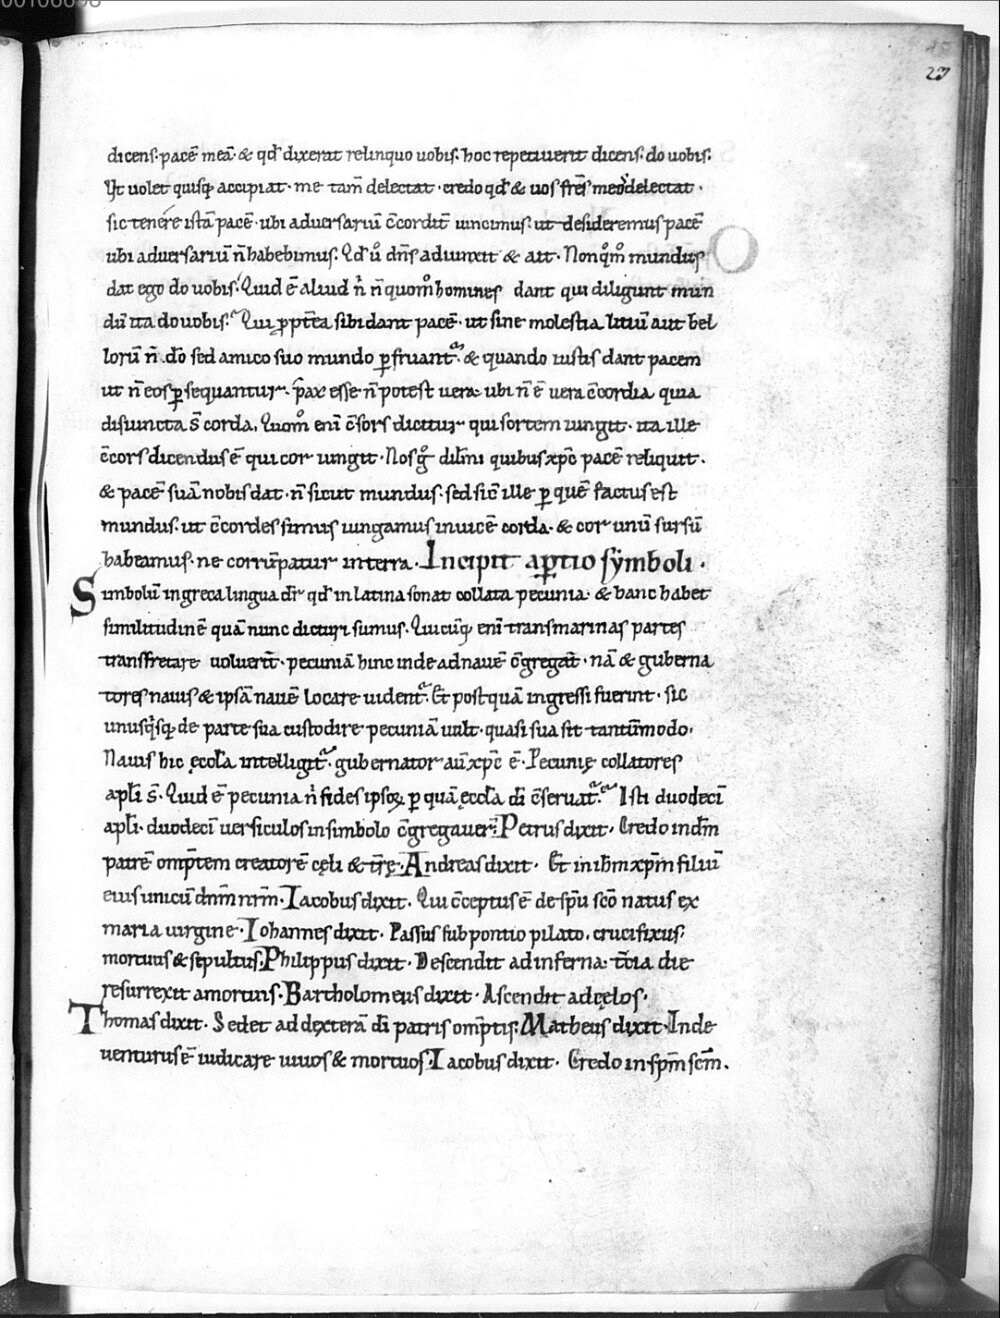 00106698
27
dicens· pacē meā· & qđ dixerat relinquo uobis· hoc repetiuerit dicens· do uobis·
Vt uolet quisq; accipiat· me tam̄ delectat· credo qđ & uos fr̄es meos delectat·
sic tenere istā pacē· ubi aduersariū c̄cordit̄ uincimus· ut desideremus pacē
ubi aduersariū n̄ habebimus· Qđ ů dn̄s adiunxit & ait· Non qm̊ mundus
dat ego do uobis· Quid ē aliud n̄ n̄ quom̊ homines dant qui diligunt mun
dū ita do uobis· Qui ꝓpt̄ea sibi dant pacē· ut sine molestia litiū aut bel
lorū n̄ dō sed amico suo mundo ꝑfruant̄· & quando iustis dant pacem
ut n̄ eos ꝑsequantur· pax esse n̄ potest uera· ubi n̄ ē uera c̄cordia quia
disiuncta s̄ corda, Quom̊ eni c̄sors dicitur qui sortem iungit· ita ille
c̄cors dicendus ē qui cor iungit· Nos g̊ dil̄mi quibus xp̄c pacē reliquit·
& pacē suā nobis dat· n̄ sicut mundus· sed sic̄ ille ꝑ quē factus est
mundus· ut c̄cordes simus iungamus inuicē corda· & cor unū sursū
habeamus· ne corrūpatur in terra· Incipit aꝑtio sÿmboli·
Simbolū in greca lingua dr̄ qđ in latina sonat collata pecunia· & hanc habet
similitudinē quā nunc dicturi sumus· Quicūq; eni transmarinas partes
transfretare uoluerīt· pecuniā hinc inde ad nauē c̄gregāt· nā & guberna
tores nauis & ipsā nauē locare uident̄· Et postquā ingressi fuerint· sic
unusq̇sq; de parte sua custodire pecuniā uult· quasi sua sit tantūmodo·
Nauis hic ęccl̄a intelligit̄· gubernator aū xp̄c ē· Pecunię collatores
apl̄i s̄· Quid ē pecunia n̄ fides ipsoꝝ ꝑ quā ęccl̄a dī c̄seruat̄· Isti duodecī
apl̄i· duodecī uersiculos in simbolo c̄gregauer̄· Petrus dixit· Credo in dm̄
patrē omp̄tem creatorē cęli & tr̄ę· Andreas dixit· Et in ihm̄ xpm̄ filiū
eius unicū dnm̄ nrm̄· Iacobus dixit· Qui c̄ceptus ē de sp̄u scō natus ex
maria uirgine· Iohannes dixit· Passus sub pontio pilato, crucifixus·
mortuus & sepultus· Philippus dixit· Descendit ad inferna· tc̄ia die
resurrexit a mortuis· Bartholomeus dixit· Ascendit ad cęlos·
Thomas dixit· Sedet ad dexterā dī patris omp̄tis· Matheus dixit· Inde
uenturus ē iudicare uiuos & mortuos· Iacobus dixit· Credo in spm̄ scm̄·